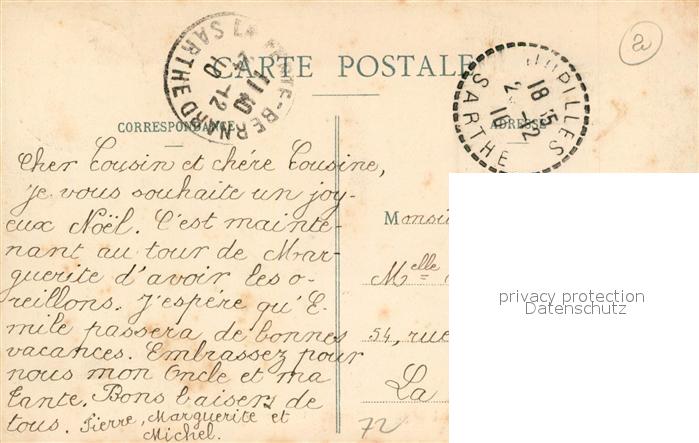 CARTE POSTALE
CORRESPONDANCE
ADRESSE
LA FERTÉ-BERNARD
SARTHE
JUPILLES
18 15
2 -12
16
SARTHE
2
Cher Cousin et chére Cousine,
je vous souhaite un joy-
eux Noël. C'est mainte-
nant au tour de Mar-
guerite d'avoir les o-
reillons. J'espére qu'E-
mile passera de bonnes
vacances. Embrassez pour
nous mon Oncle et ma
Tante. Bons baisers de
tous. Pierre, Marguerite et
Michel.
Monsie
Melle
54, rue
La
72
privacy protection
Datenschutz